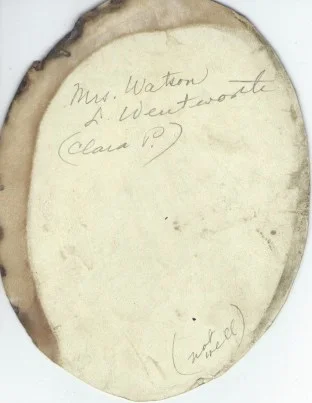 Mrs. Watson
L. Wentworth
(Clara P.)
(not
well)